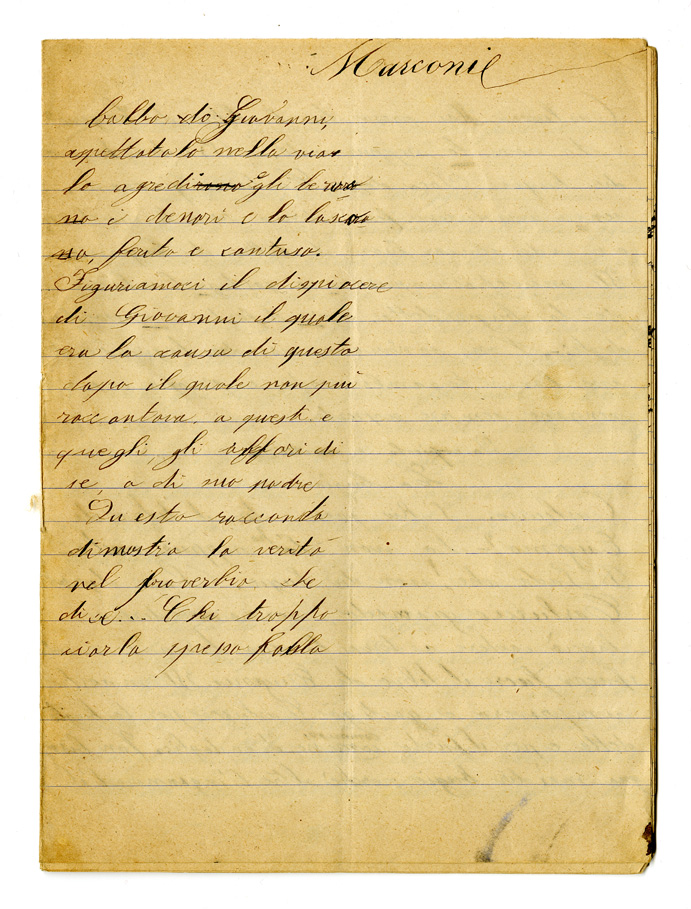 Marconi
babbo di Giovanni,
aspettatolo nella via
lo agredirono gli le
no i denari e lo lascia
no, ferito e contuso.
Figuriamoci il dispiacere
di Giovanni il quale
era la causa di questo
dopo il quale non più
raccontava a questi e
quegli, gli affari di
se, o di suo padre
Questo racconto
dimostra la verità
nel proverbio che
dice... Chi troppo
ciarla spesso falla